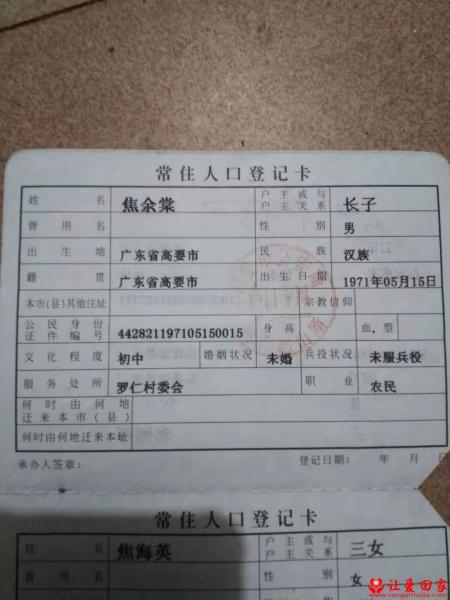 常住人口登记卡
姓名 焦余棠 户主或与户主关系 长子
曾用名 性别 男
出生地 广东省高要市 民族 汉族
籍贯 广东省高要市 出生日期 1971年05月15日
本市(县)其他住址 宗教信仰
公民身份证件编号 442821197105150015 身高 血型
文化程度 初中 婚姻状况 未婚 兵役状况 未服兵役
服务处所 罗仁村委会 职业 农民
何时由何地迁来本市(县)
何时由何地迁来本址
承办人签章: 登记日期: 年 月 日
常住人口登记卡
姓名 焦海英 户主或与户主关系 三女
曾用名 性别 女
让爱回家
www.rangaihuijia.com